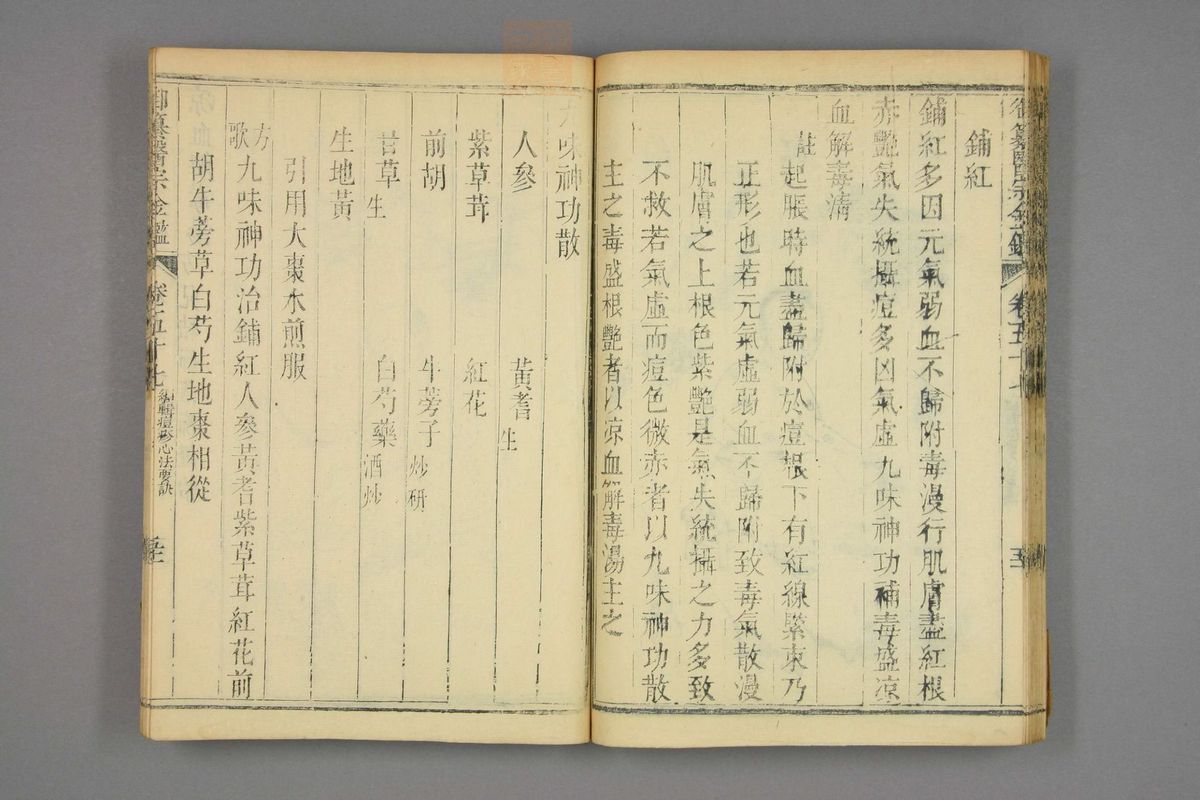 御纂醫宗金鑑 卷五十七
鋪紅
鋪紅多因元氣弱血不歸附毒漫行肌膚盡紅根
赤艷氣失統攝痘多凶氣虛九味神功補毒盛凉
血解毒清
註起脹時血盡歸附於痘根下有紅線緊束乃
正形也若元氣虛弱血不歸附致毒氣散漫
肌膚之上根色紫艷是氣失統攝之力多致
不救若氣虛而痘色微赤者以九味神功散
主之毒盛根艷者以凉血解毒湯主之
九味神功散
人參 黃耆 生
紫草茸 紅花
前胡 牛蒡子 炒研
甘草 生 白芍藥 酒炒
生地黃
引用大棗水煎服
方歌 九味神功治鋪紅人參黃耆紫草茸紅花前
胡牛蒡草白芍生地棗相從
御纂醫宗金鑑 卷五十七 編輯痘疹心法要訣